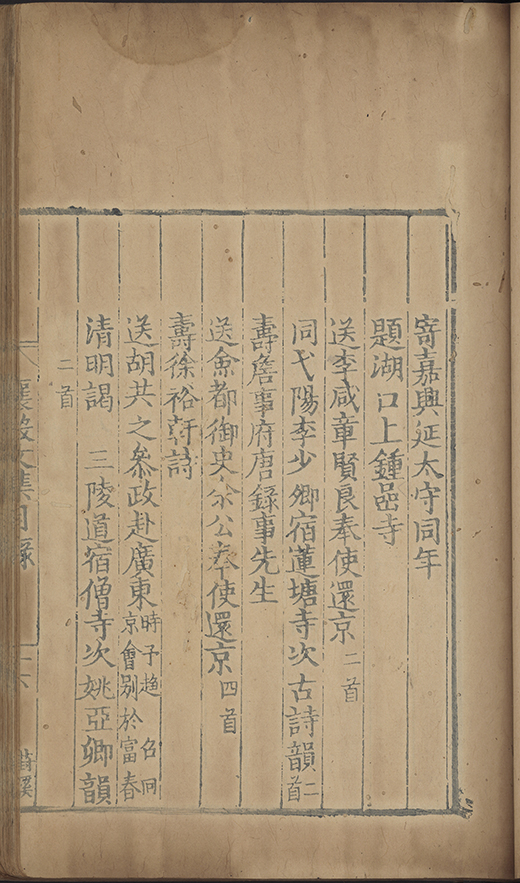 寄嘉興延太守同年
題湖口上鍾嵒寺
送李咸章賢良奉使還京二首
同弋陽李少卿宿蓮塘寺次古詩韻二首
壽詹事府唐錄事先生
送僉都御史余公奉使還京四首
壽徐裕軒詩
送胡共之叅政赴廣東時予趨 召同京會別於富春
清明謁 三陵道宿僧寺次姚亞卿韻
二首
襄毅文集目錄